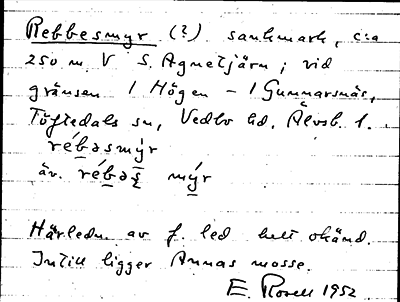 Rebbesmyr (?) sankmark, c:a
250 m V S. Agnetjärn; vid
gränsen 1 Högen – 1 Gunnarsnäs,
Töftedals sn, Vedbo hd, Älvsb. l.
rébəsmýr
äv. rébəs mýr
Härledn. av f. led helt okänd.
Intill ligger Annas mosse.
E. Rosell 1952